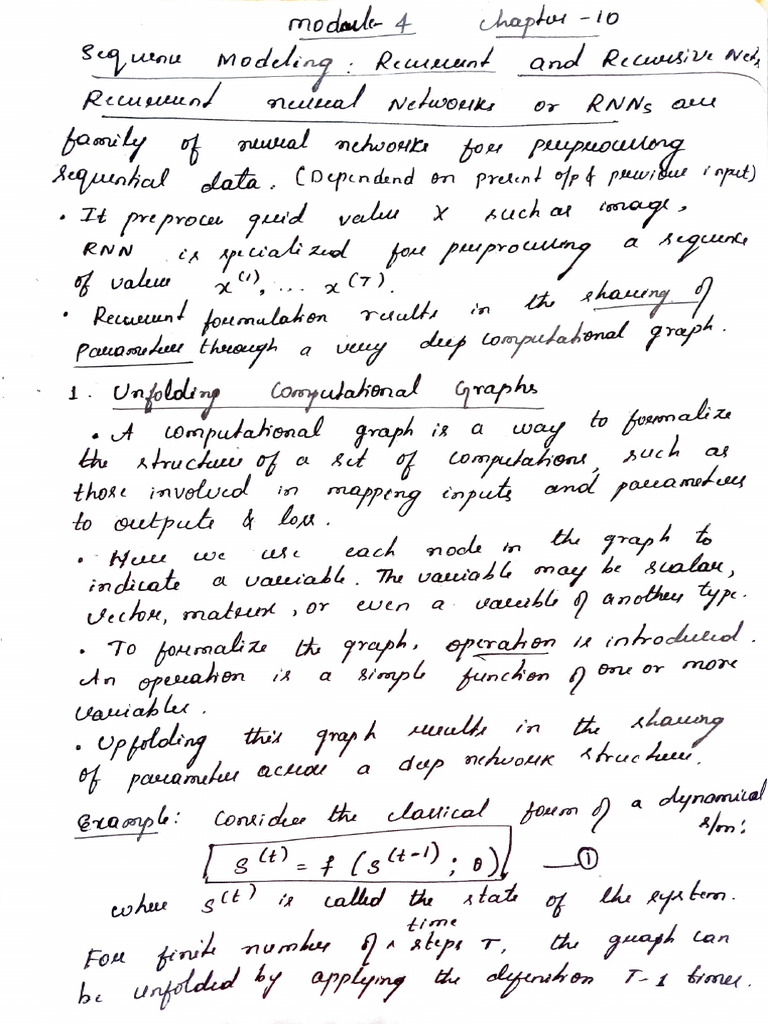 Module 4 Chapter - 10
Sequence Modeling : Recurrent and Recursive Nets
Recurrent neural Networks or RNNs are
family of neural networks for preprocessing
sequential data. (Dependend on present o/p & previous input)
• It preproces grid value X such as image,
RNN is specialized for preprocessing a sequence
of values x(1), ... x(T).
• Recurrent formulation results in the sharing of
Parameters through a very deep computational graph.
1. Unfolding Computational Graphs
• A computational graph is a way to formalize
the structure of a set of computations, such as
those involved in mapping inputs and parameters
to outputs & loss.
• Here we use each node in the graph to
indicate a variable. The variable may be scalar,
vector, matrix, or even a varible of another type.
• To formalize the graph, operation is introduced.
An operation is a simple function of one or more
variables.
• Upfolding this graph results in the sharing
of parameters across a deep network structure.
Example: Consider the classical form of a dynamical
s/m:
S(t) = f (S(t-1) ; θ) —①
where S(t) is called the state of the system.
For finite number of time steps τ, the graph can
be unfolded by applying the definition T-1 times.